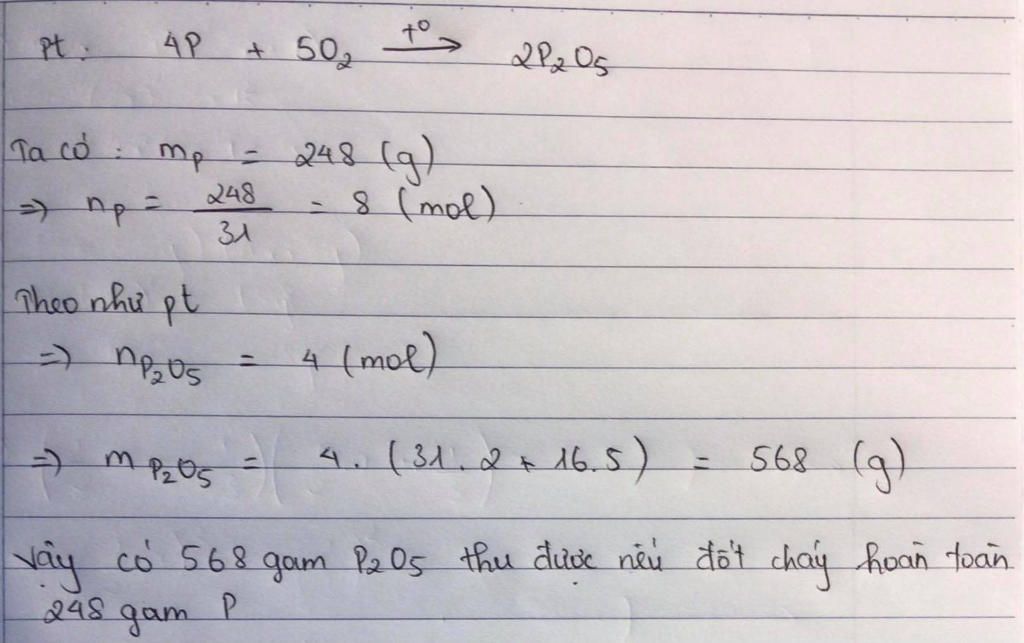 Pt: 4P + 5O₂ --t⁰--> 2P₂O₅
Ta có: mₚ = 248 (g)
=> nₚ = 248/31 = 8 (mol)
Theo như pt
=> n P₂O₅ = 4 (mol)
=> m P₂O₅ = 4. (31. 2 + 16. 5) = 568 (g)
Vậy có 568 gam P₂O₅ thu được nếu đốt cháy hoàn toàn
248 gam P